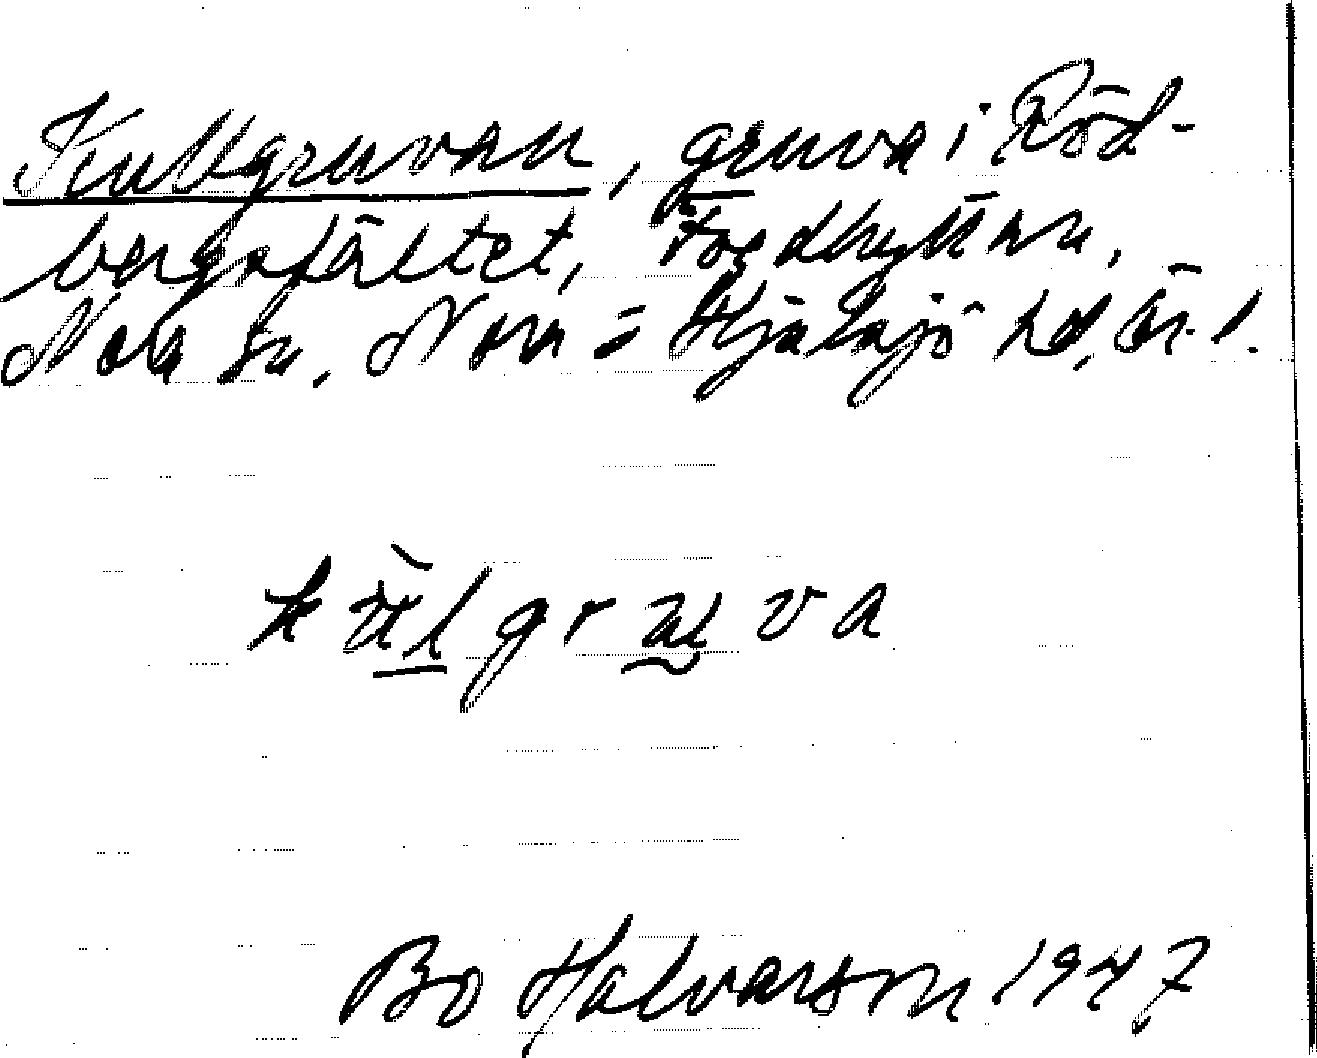 Kullgruvan, gruva i Röd-
bergsfältet, Pershyttan,
Nora sn, Nora o Hjulsjö hd, Ör. l.
kùlgruva
Bo Halvarson 1947